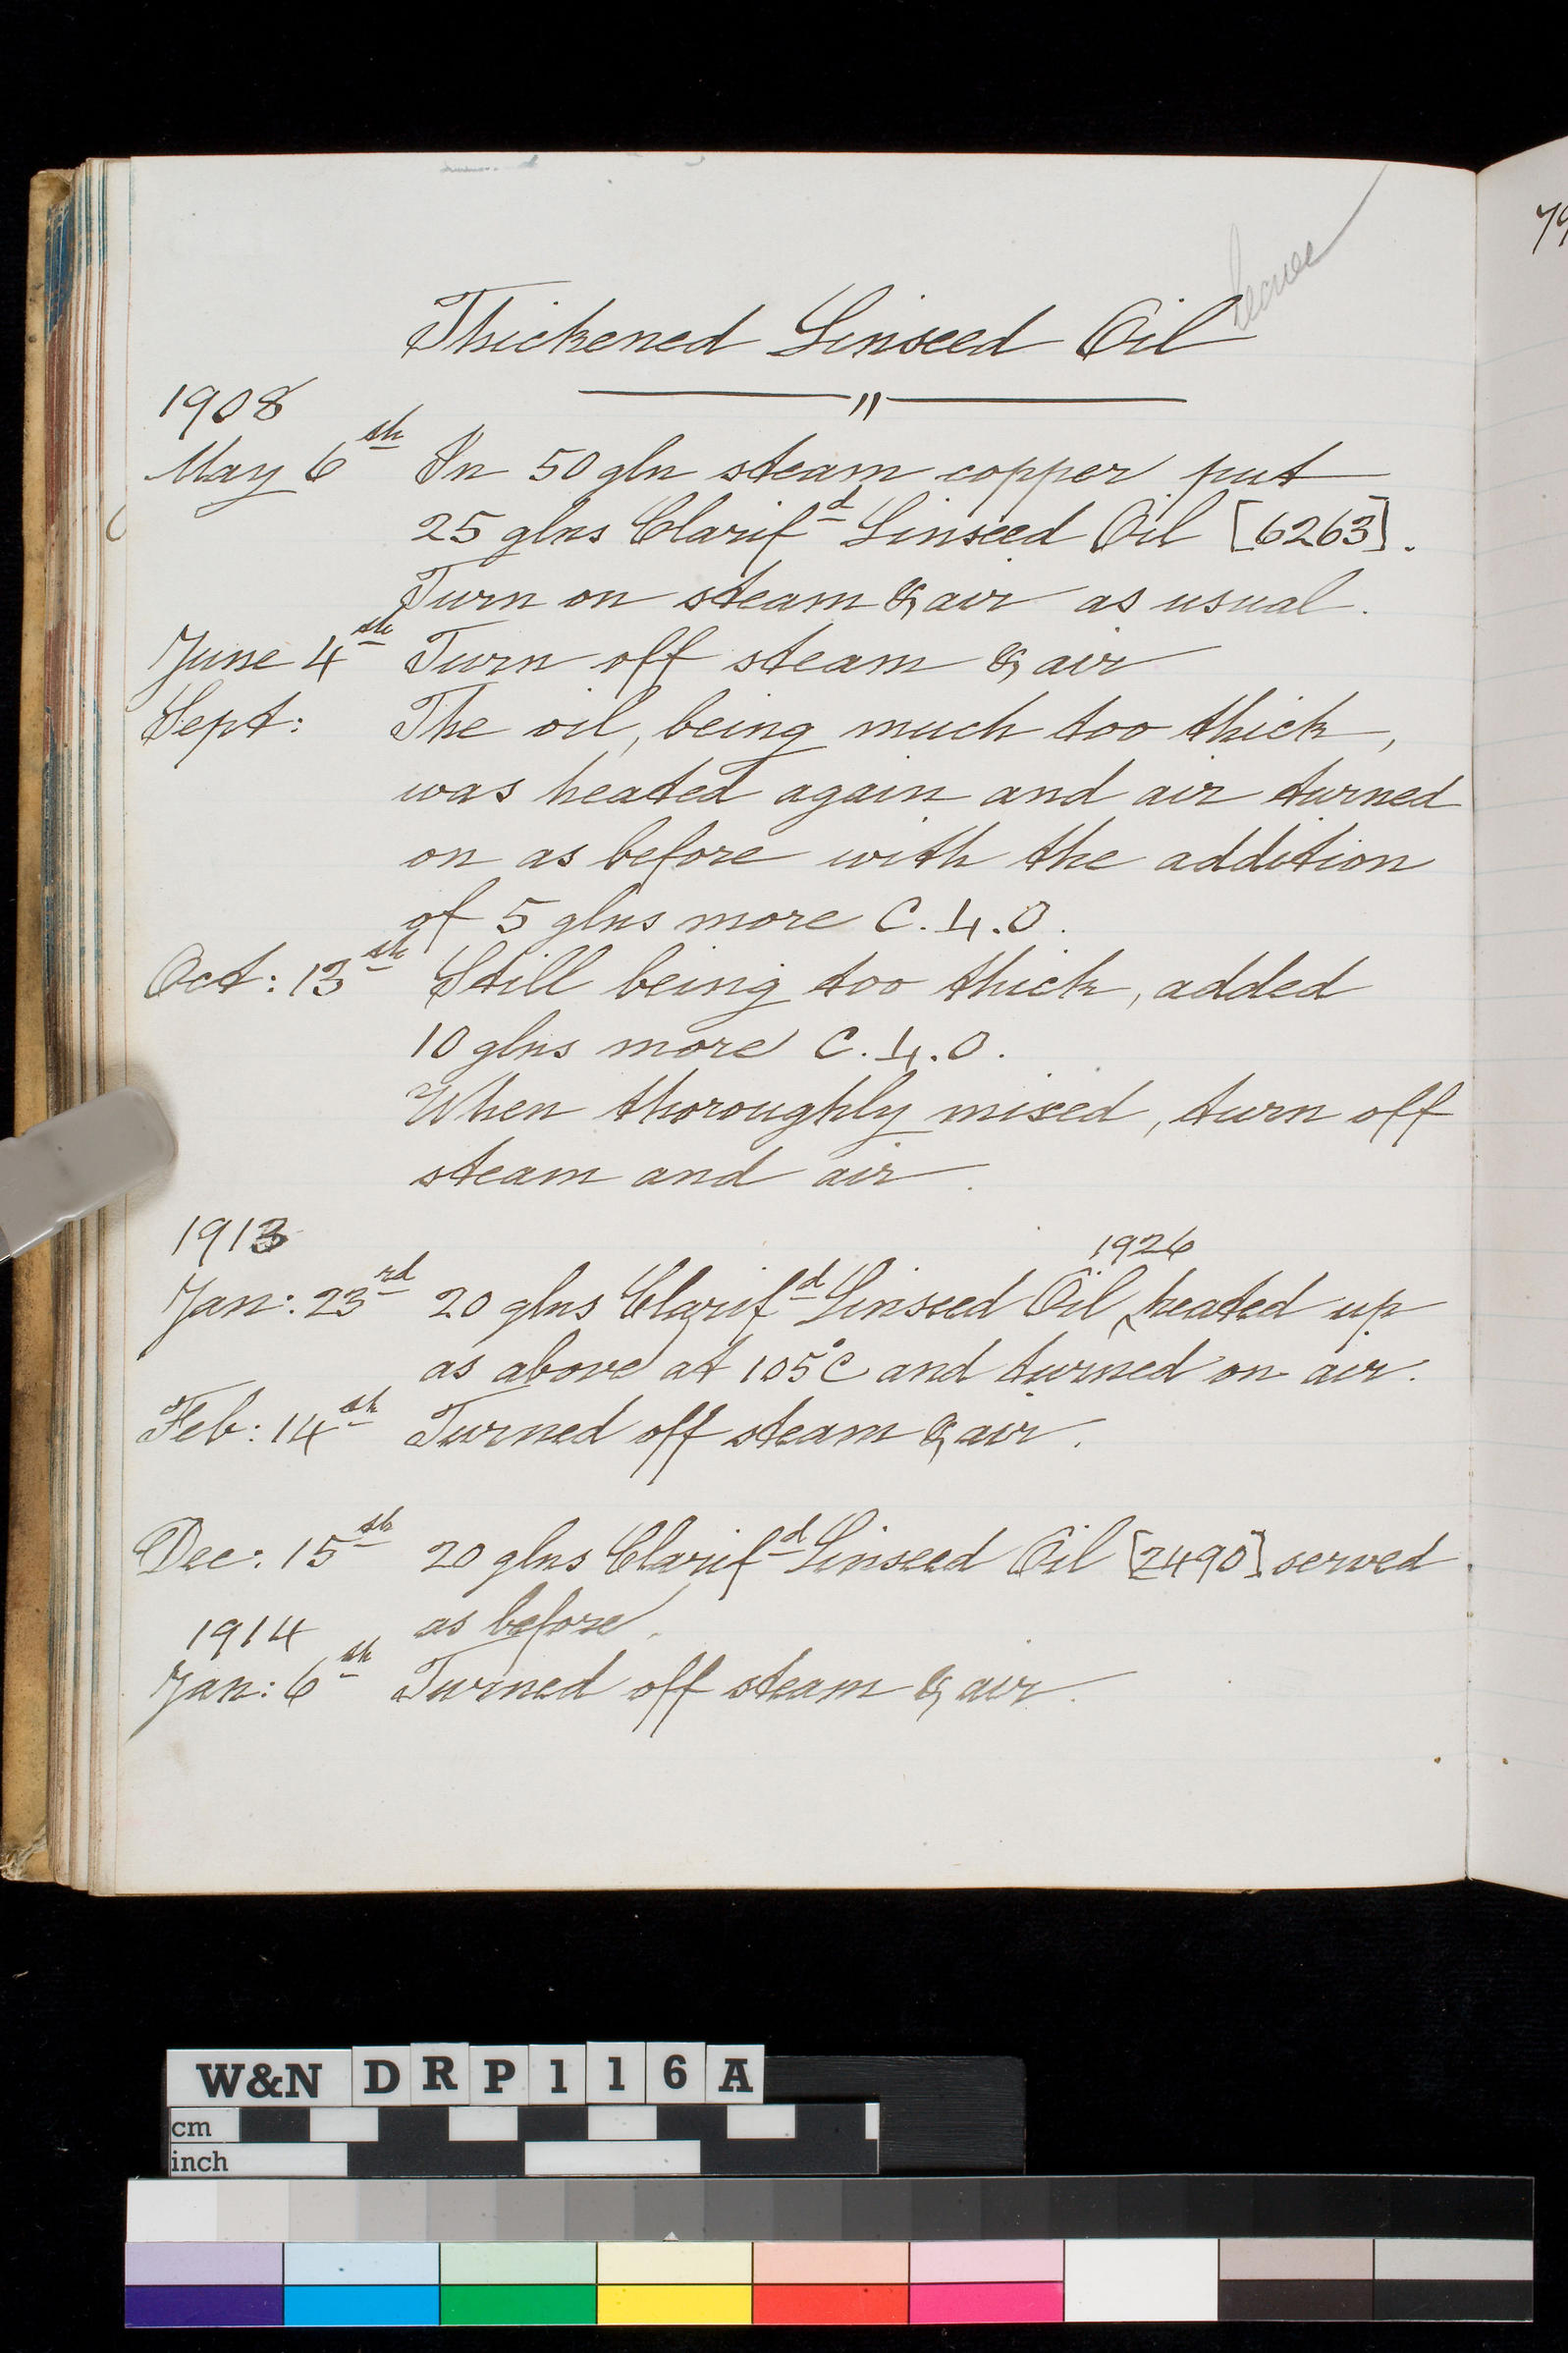 79
Thickened Linseed Oil
1908
May 6th In 50 gln steam copper put
25 glns Clarifd Linseed Oil [6263].
Turn on steam & air as usual.
June 4th Turn off steam & air
Sept: The oil, being much too thick,
was heated again and air turned
on as before with the addition
of 5 glns more C.L.O.
Oct: 13th Still being too thick, added
10 glns more C.L.O.
When thoroughly mixed, turn off
steam and air.
1913
1926
Jan: 23rd 20 glns Clarifd Linseed Oil, heated up
as above at 105°C and turned on air.
Feb: 14th Turned off steam & air.
Dec: 15th 20 glns Clarifd Linseed Oil [2490] served
as before.
1914
Jan: 6th Turned off steam & air.
W&N DRP116A
cm
inch